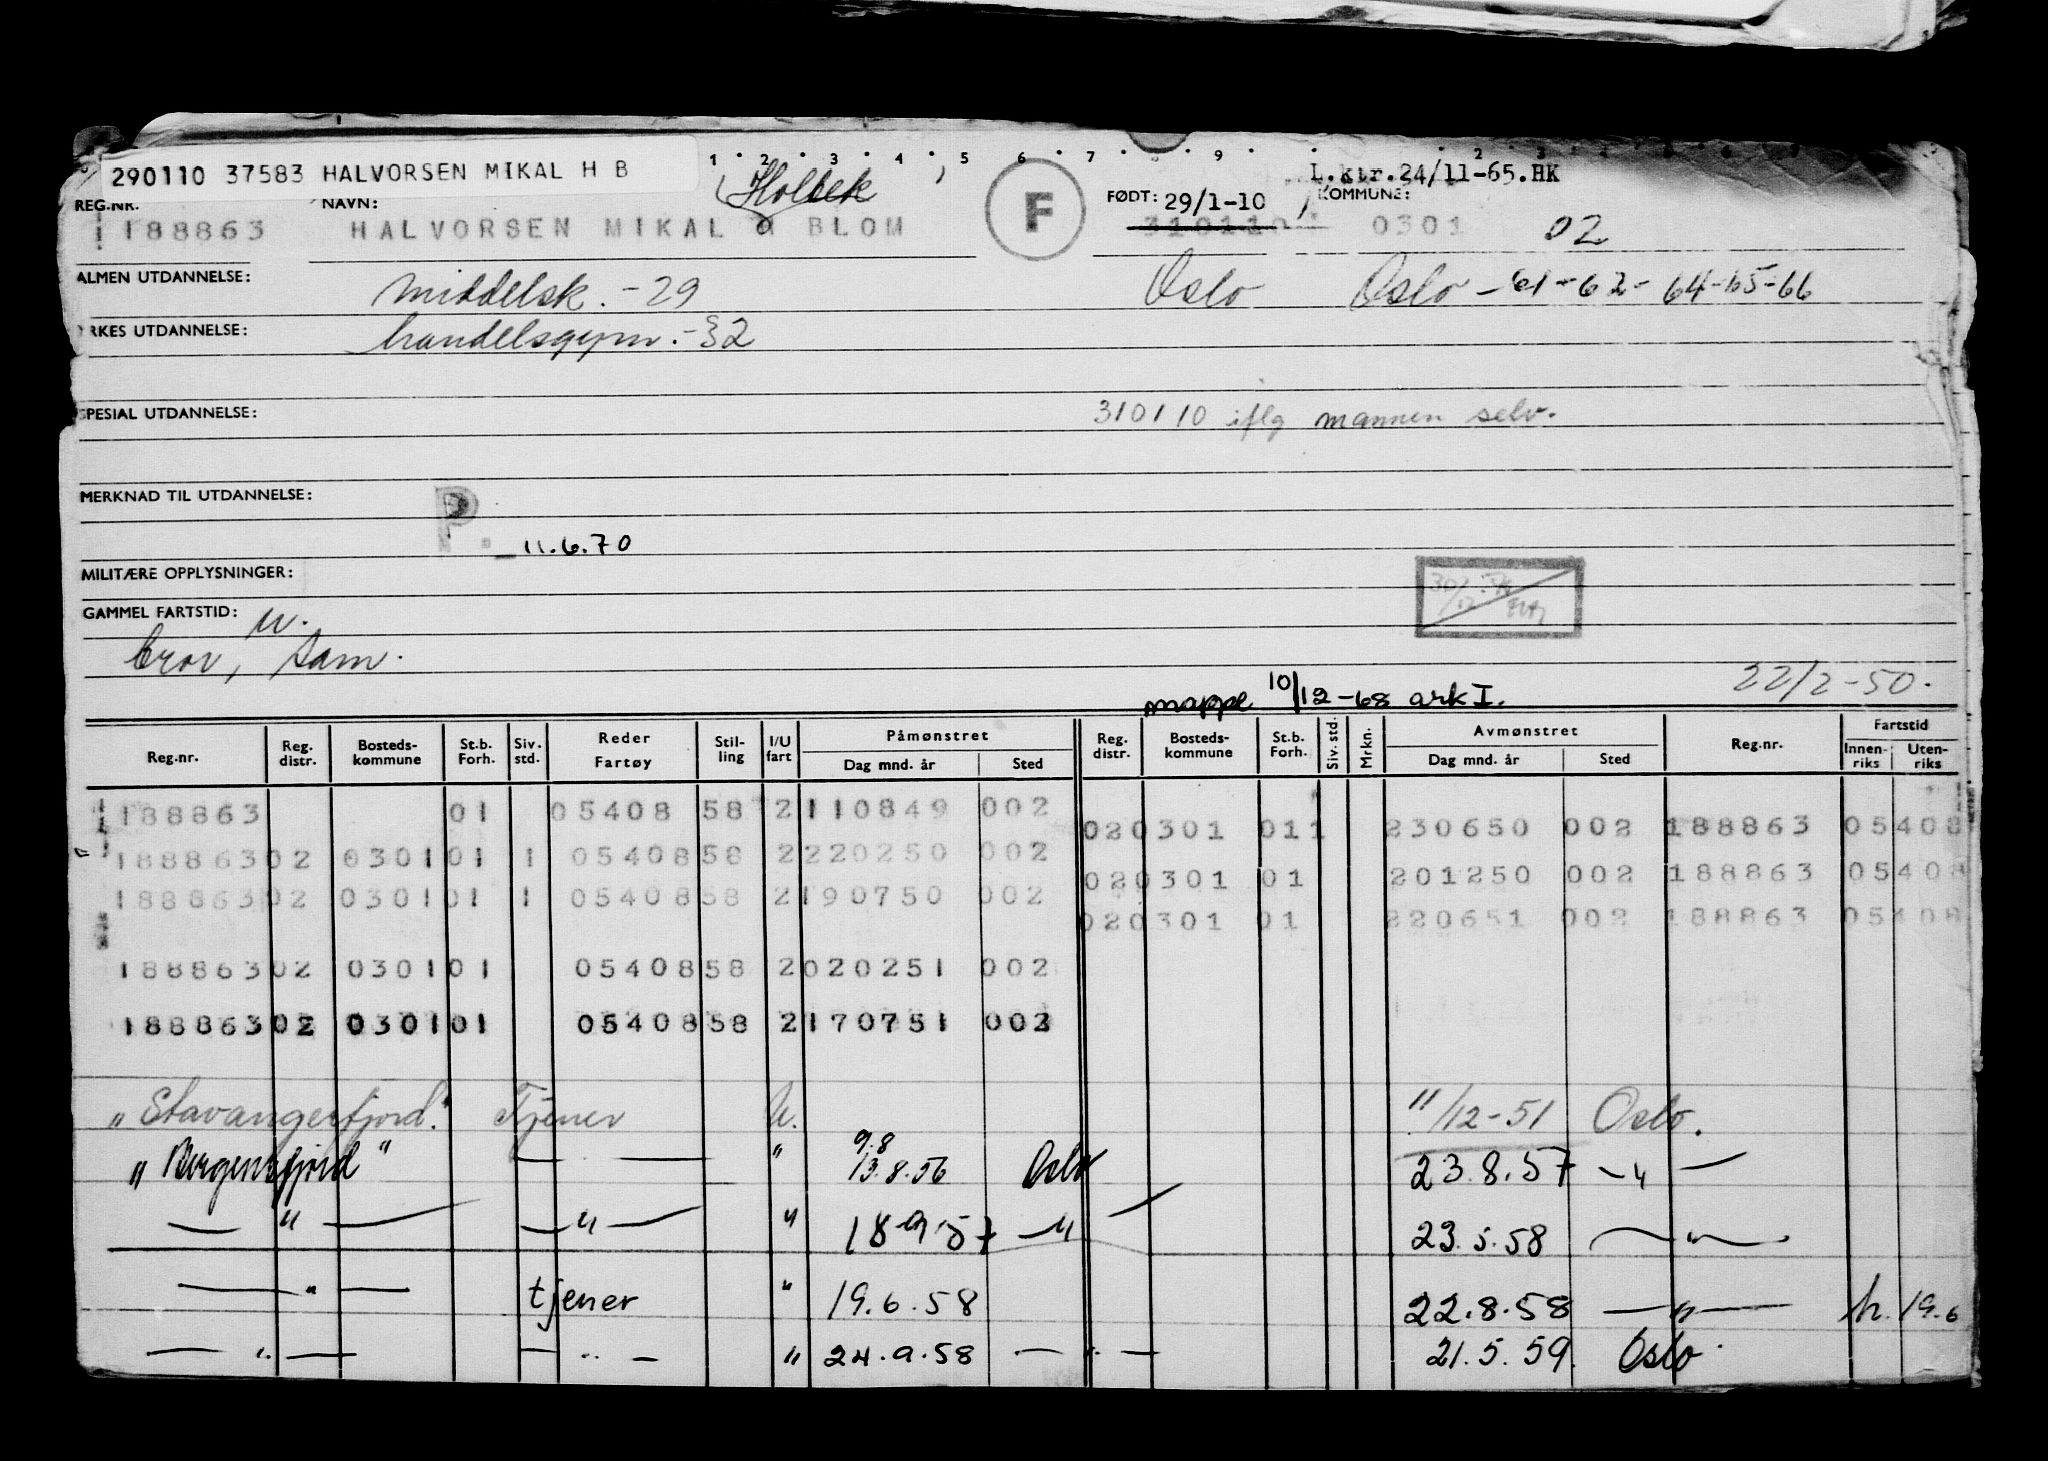 290110 37583 HALVORSEN MIKAL H B
1 2 3 4 5 6 7 8 9
Holbek
L.ktr.24/11-65.HK
REG.NR. NAVN: F FØDT: 29/1-10 KOMMUNE:
188863 HALVORSEN MIKAL BLOM 310110 0301 02
ALMEN UTDANNELSE: middelsk. -29 Oslo Oslo -61-62-64-65-66
RKES UTDANNELSE: handelsgym. -32
SPESIAL UTDANNELSE: 310110 iflg mannen selv.
MERKNAD TIL UTDANNELSE: P.
11.6.70
MILITÆRE OPPLYSNINGER:
GAMMEL FARTSTID: u.
brov, sam.
22/2-50.
mappe 10/12-68 ark I.
Reg.nr. Reg. distr. Bosteds- kommune St.b. Forh. Siv. std. Reder Fartøy Stil- ling I/U fart Påmønstret Dag mnd. år Sted Reg. distr. Bosteds- kommune St.b. Forh. Siv. std. Mrkn. Avmønstret Dag mnd. år Sted Reg.nr. Fartstid Innen- riks Uten- riks
188863 01 05408 58 2 110849 002
020301 011 230650 002 188863 05408
188863 02 0301 01 1 05408 58 2 220250 002
020301 01 201250 002 188863 05408
188863 02 0301 01 1 05408 58 2 190750 002
020301 01 220651 002 188863 05408
188863 02 0301 01 05408 58 2 020251 002
188863 02 0301 01 05408 58 2 170751 002
"Stavangerfjord". Tjener U. 11/12-51 Oslo.
9.8
"Bergensfjord" — — " 13.8.56 Oslo 23.8.57 — " —
— " — — " — " 18.9.57 — " — 23.5.58 — " —
— " — tjener " 19.6.58 22.8.58 — " — h. 19.6
— " — — " — " 24.9.58 — " — 21.5.59. Oslo.